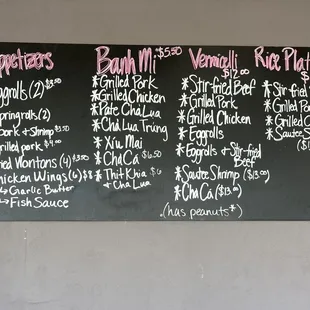 ppetizers
ggrolls (2) $3.50
pringrolls (2)
pork + Shrimp $3.50
grilled pork $4.00
ried Wontons (4) $3.50
hicken Wings (6) $8
↳ Garlic Butter
↳ Fish Sauce
Banh Mi $5.50
* Grilled Pork
* Grilled Chicken
* Pate Cha Lua
* Cha Lua Trung
* Xiu Mai
* Cha Ca $6.50
* Thit Khia $6
& Cha Lua
Vermicelli
$12.00
* Stir-fried Beef
* Grilled Pork
* Grilled Chicken
* Eggrolls
* Eggrolls & Stir-fried
Beef
* Sautee Shrimp ($13.00)
* Cha Ca ($13.00)
(has peanuts*)
Rice Plat
* Stir-frie
* Grilled Po
* Grilled C
* Sautee S